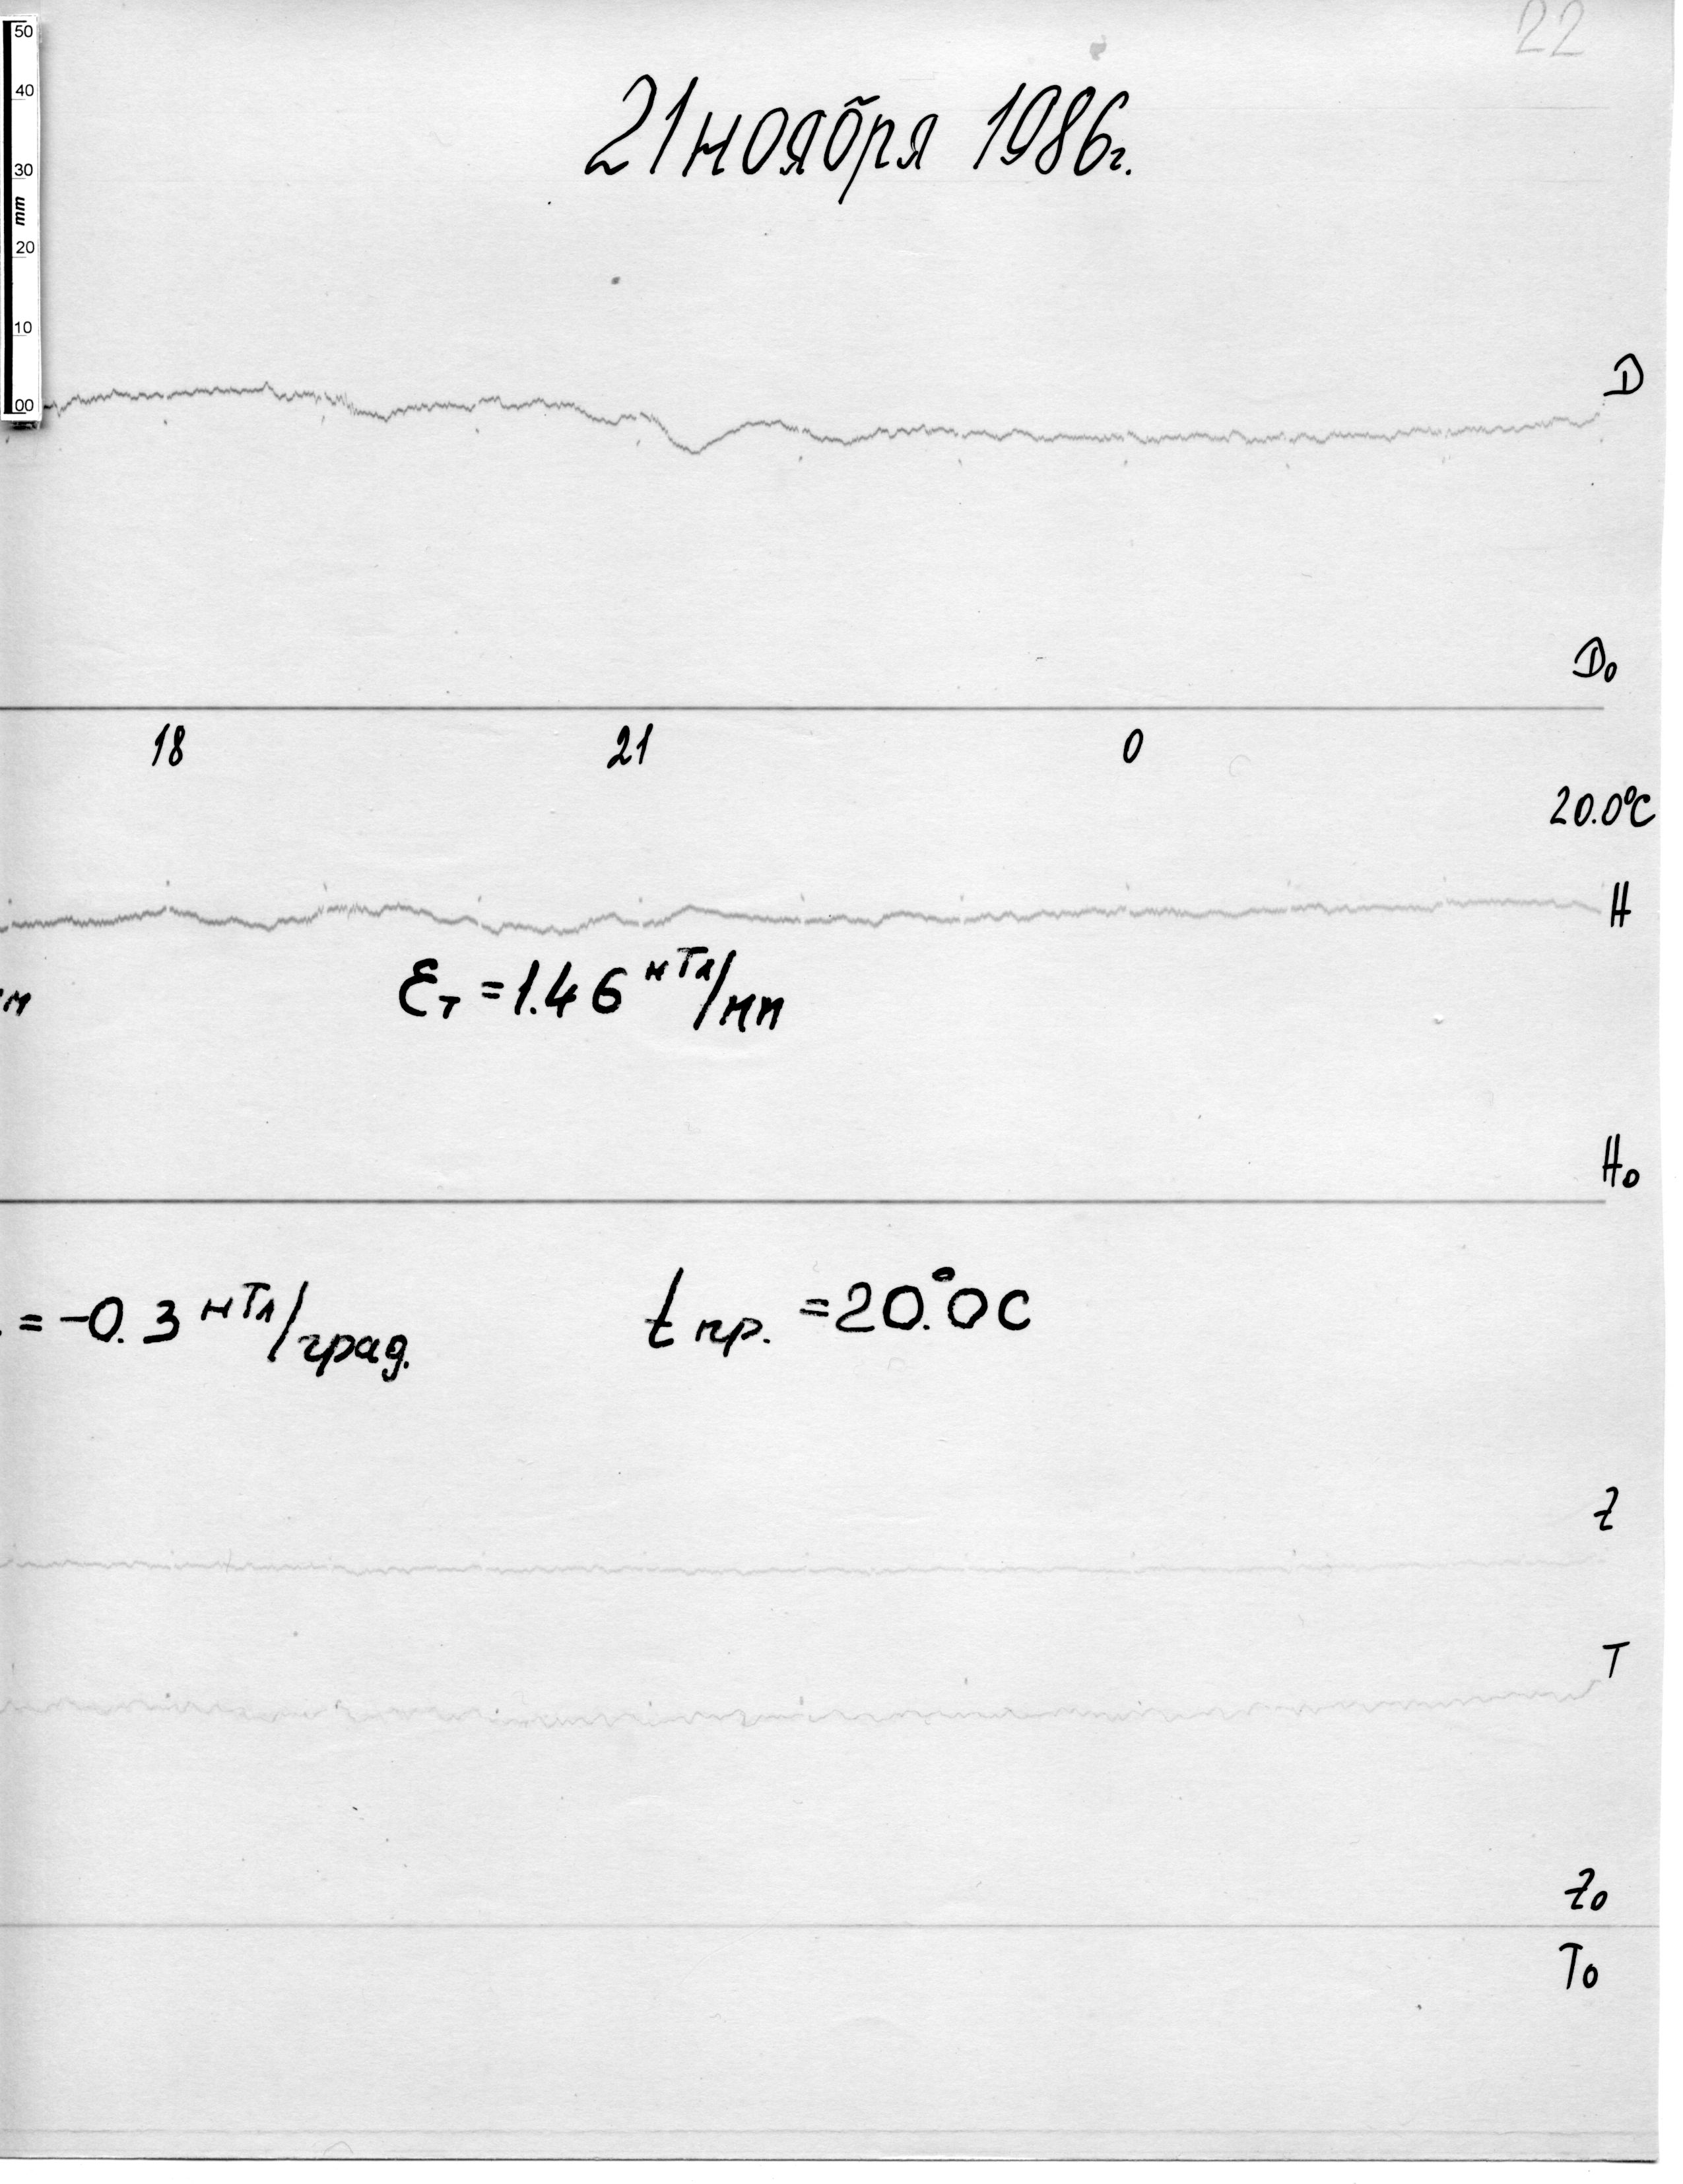 22
50
40
30
mm
20
10
00
21 ноября 1986г.
D
D₀
18 21 0
20.0°C
H
м Ɛт = 1.46 нТл/мм
H₀
= -0.3 нТл/град. t пр. = 20.°0C
Z
T
Z₀
T₀